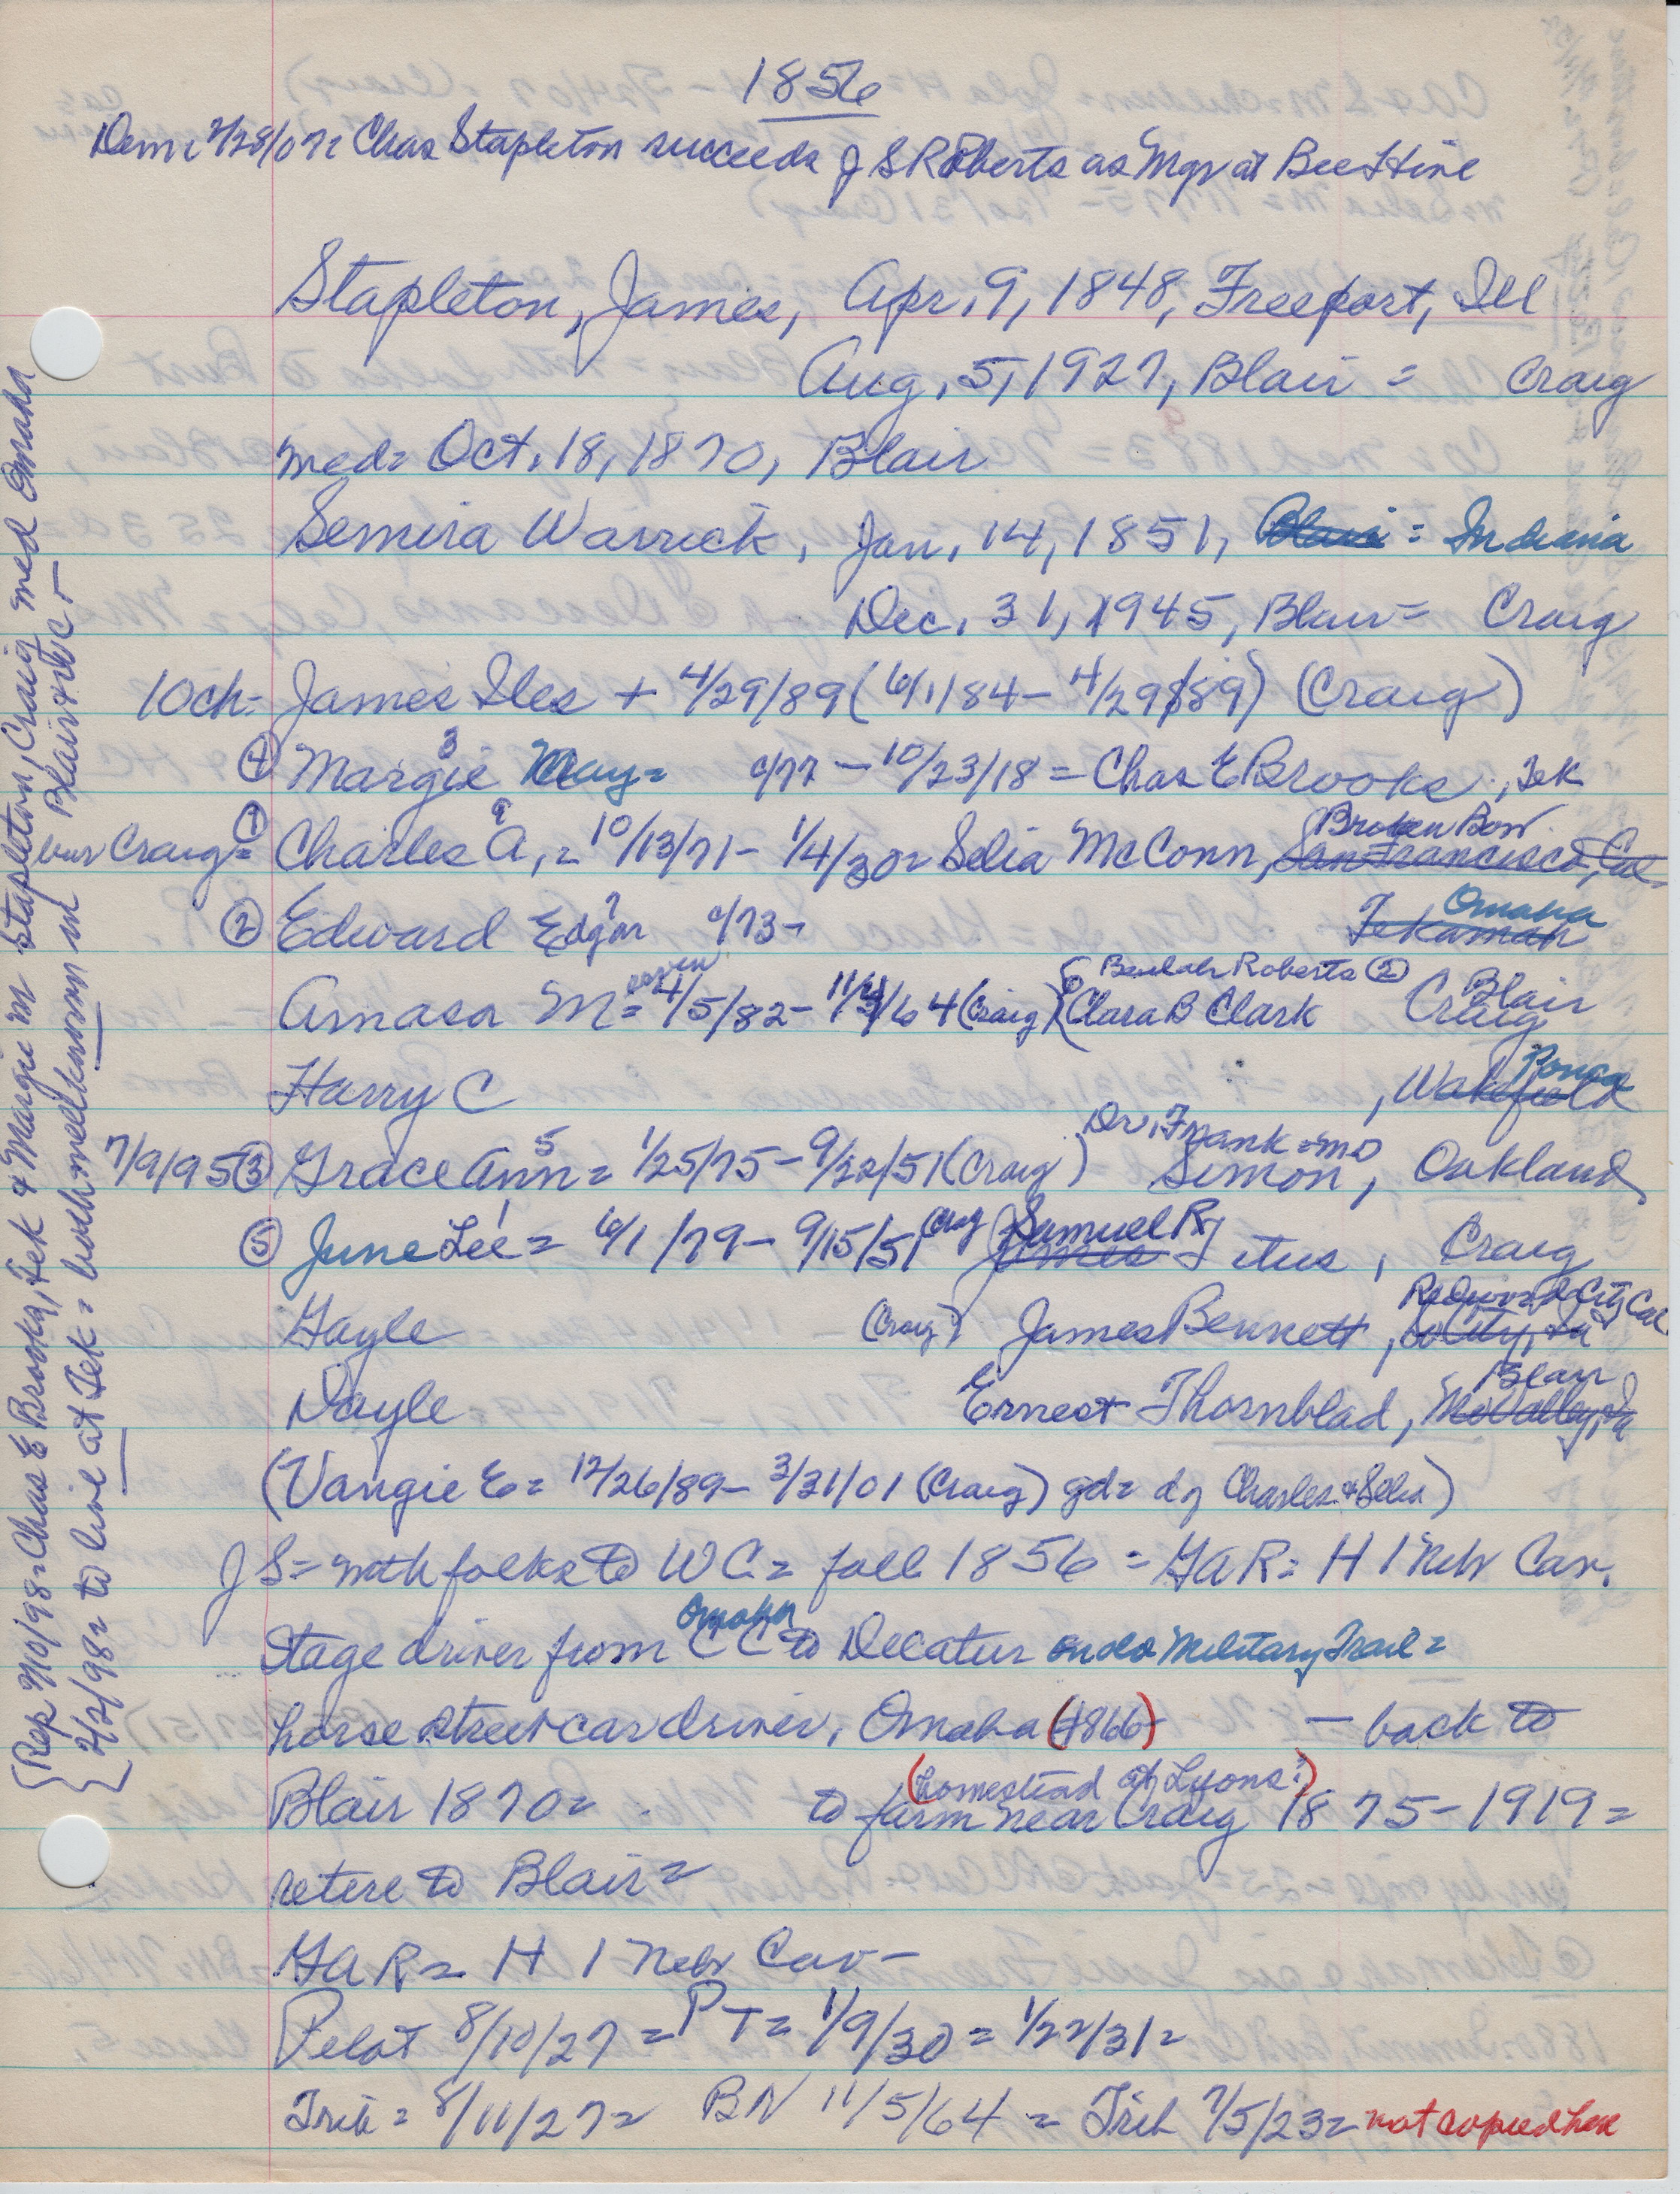 1856
Dem = 2/28/07 = Chas Stapleton succeeds J S Roberts as Mgr at Bee Hive
Stapleton, James, Apr. 9, 1848, Freeport, Ill
Aug. 5, 1927, Blair = Craig
med = Oct. 18, 1870, Blair
Semira Warrick, Jan. 14, 1851, Blair = Indiana
Dec. 31, 1945, Blair = Craig
10 ch = James Iles + 4/29/89 (6/1/84 - 4/29/89) (Craig)
④ Margie May = 3 c/77 - 10/23/18 = Chas E Brooks, Tek
Broken Bow
bur Craig = ① Charles A. = 9 10/13/71 - 1/4/30 = Selia McConn, San Francisco, Cal
Omaha
② Edward Edgar 7 c/73 - Tekamah
Beulah Roberts ② Blair
Amasa M = 4/5/82 - 11/4/64 (Craig) { Clara B Clark Craig
Ponca
Harry C , Wakefield
Dr. Frank = MD
7/9/95 ③ Grace Ann = 5 1/25/75 - 9/22/51 (Craig) Simon, Oakland
Samuel R
⑤ June Lee = 1 6/1/79 - 9/15/51 Crag James Titus, Craig
Redwood City Cal
Gayle (Craig) James Bennett, So City, Ia
Blair
Dayle Ernest Thornblad, Mo Valley, Ia
(Vangie E = 12/26/89 - 3/31/01 (Craig) gd = d of Charles & Selia)
J S = with folks to WC = fall 1856 = GAR = H 1 Nebr Cav.
Omaha
Stage driver from CC to Decatur on old Military Trail =
horse street car driver, Omaha (1866) - back to
(homestead of Lyons?)
Blair 1870 = to farm near Craig 1875 - 1919 =
retire to Blair =
GAR = H 1 Nebr Cav -
Pilot 8/10/27 = PT = 1/9/30 = 1/22/31 =
Trib = 8/11/27 = BN 11/5/64 = Trib 7/5/23 = not copied here
{Rep 2/10/98 = Chas E Brooks, Tek & Margie m Stapleton, Craig med Omaha
{2/2/98 = to live at Tek = both well known in Blair & WC -